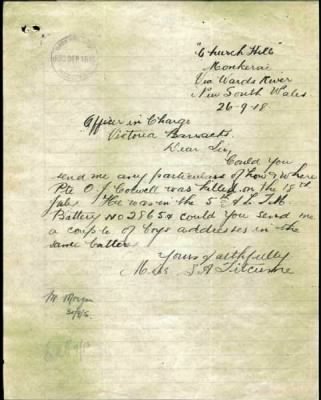 "Church Hill"
Monkerai
Via Wards River
New South Wales
26-9-18
Officer in Charge
Victoria Barracks
Dear Sir,
Could you
send me any particulars of how & where
Pte O. J. Colwell was killed on the 18th
July He was in the 5th A L T M
Battery No 2565A could you send me
a couple of boys addresses in the
same battery
Yours faithfully
Mrs S A
M. Morgan